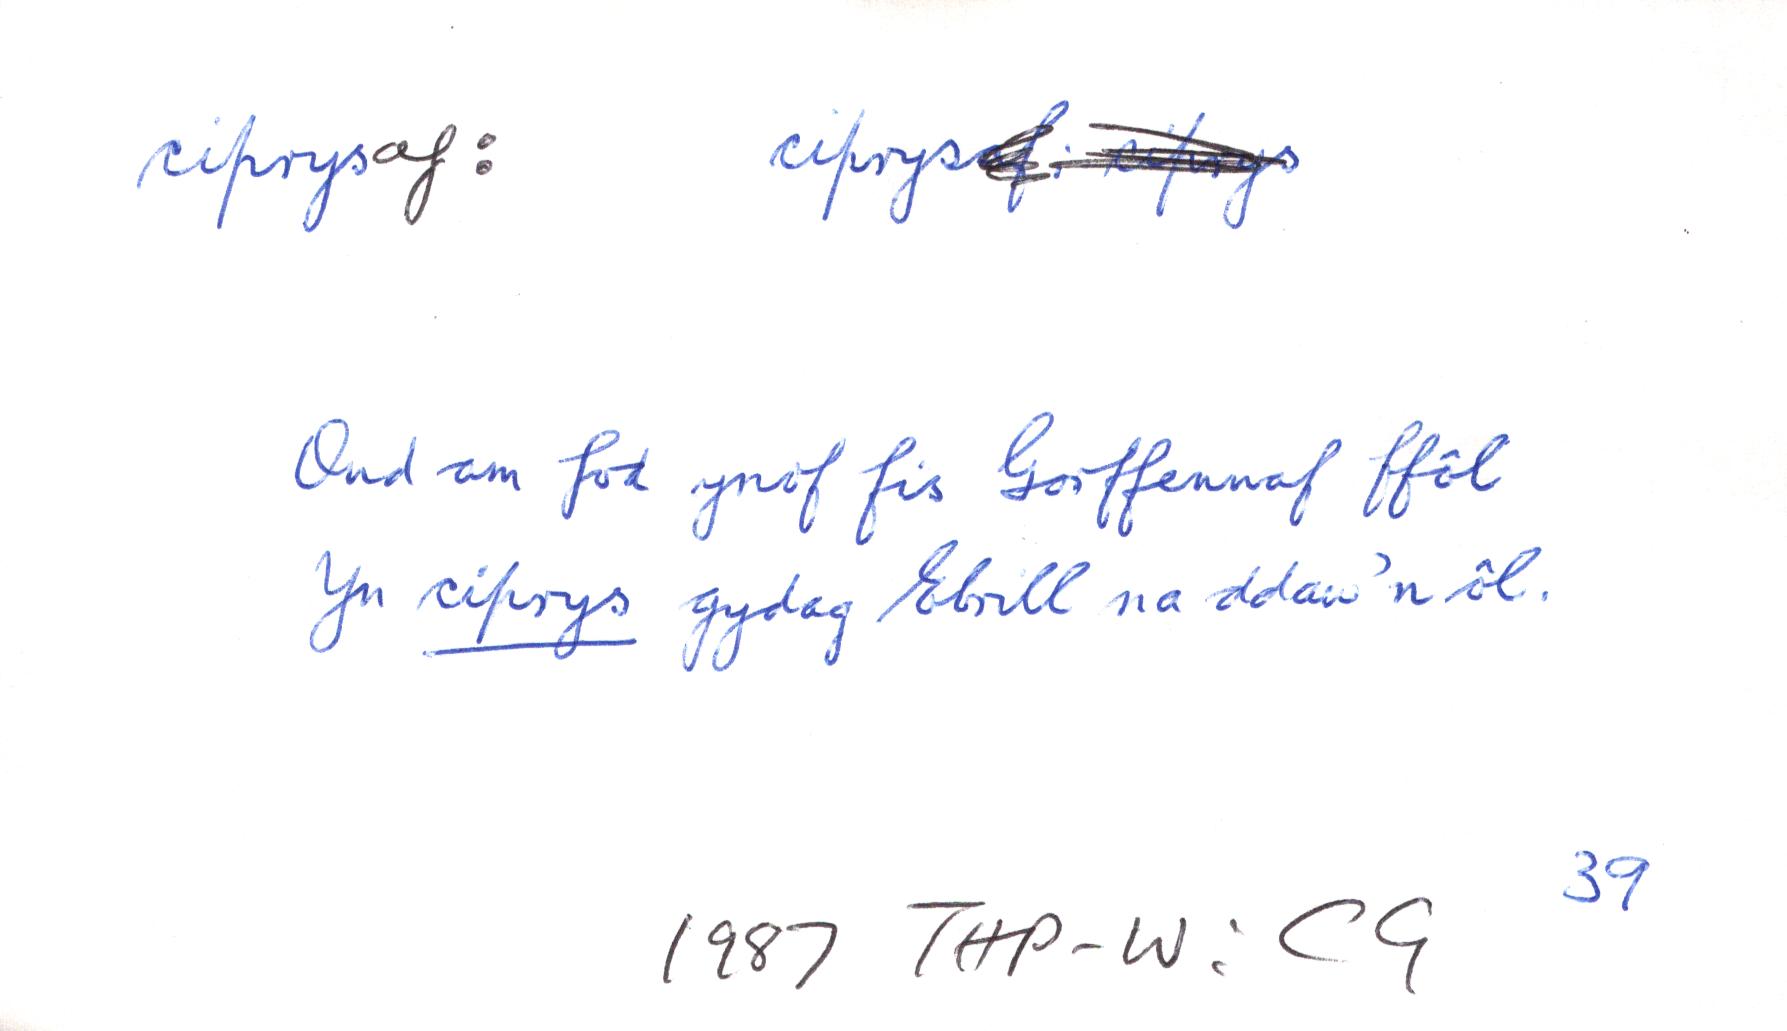 ciprysaf: ciprysaf: ciprys
Ond am fod ynof fis Gorffennaf ffôl
Yn ciprys gydag Ebrill na ddaw'n ôl.
39
1987 THP-W: CG